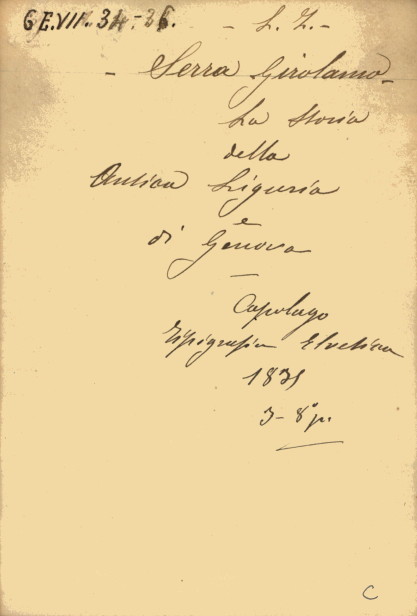 GE.VII. 34-36.
- L. Z. -
- Serra Girolamo -
La Storia
della
Antica Liguria
e
di Genova
—
Capolago
Tipografia Elvetica
1835
3 - 8° p.
C